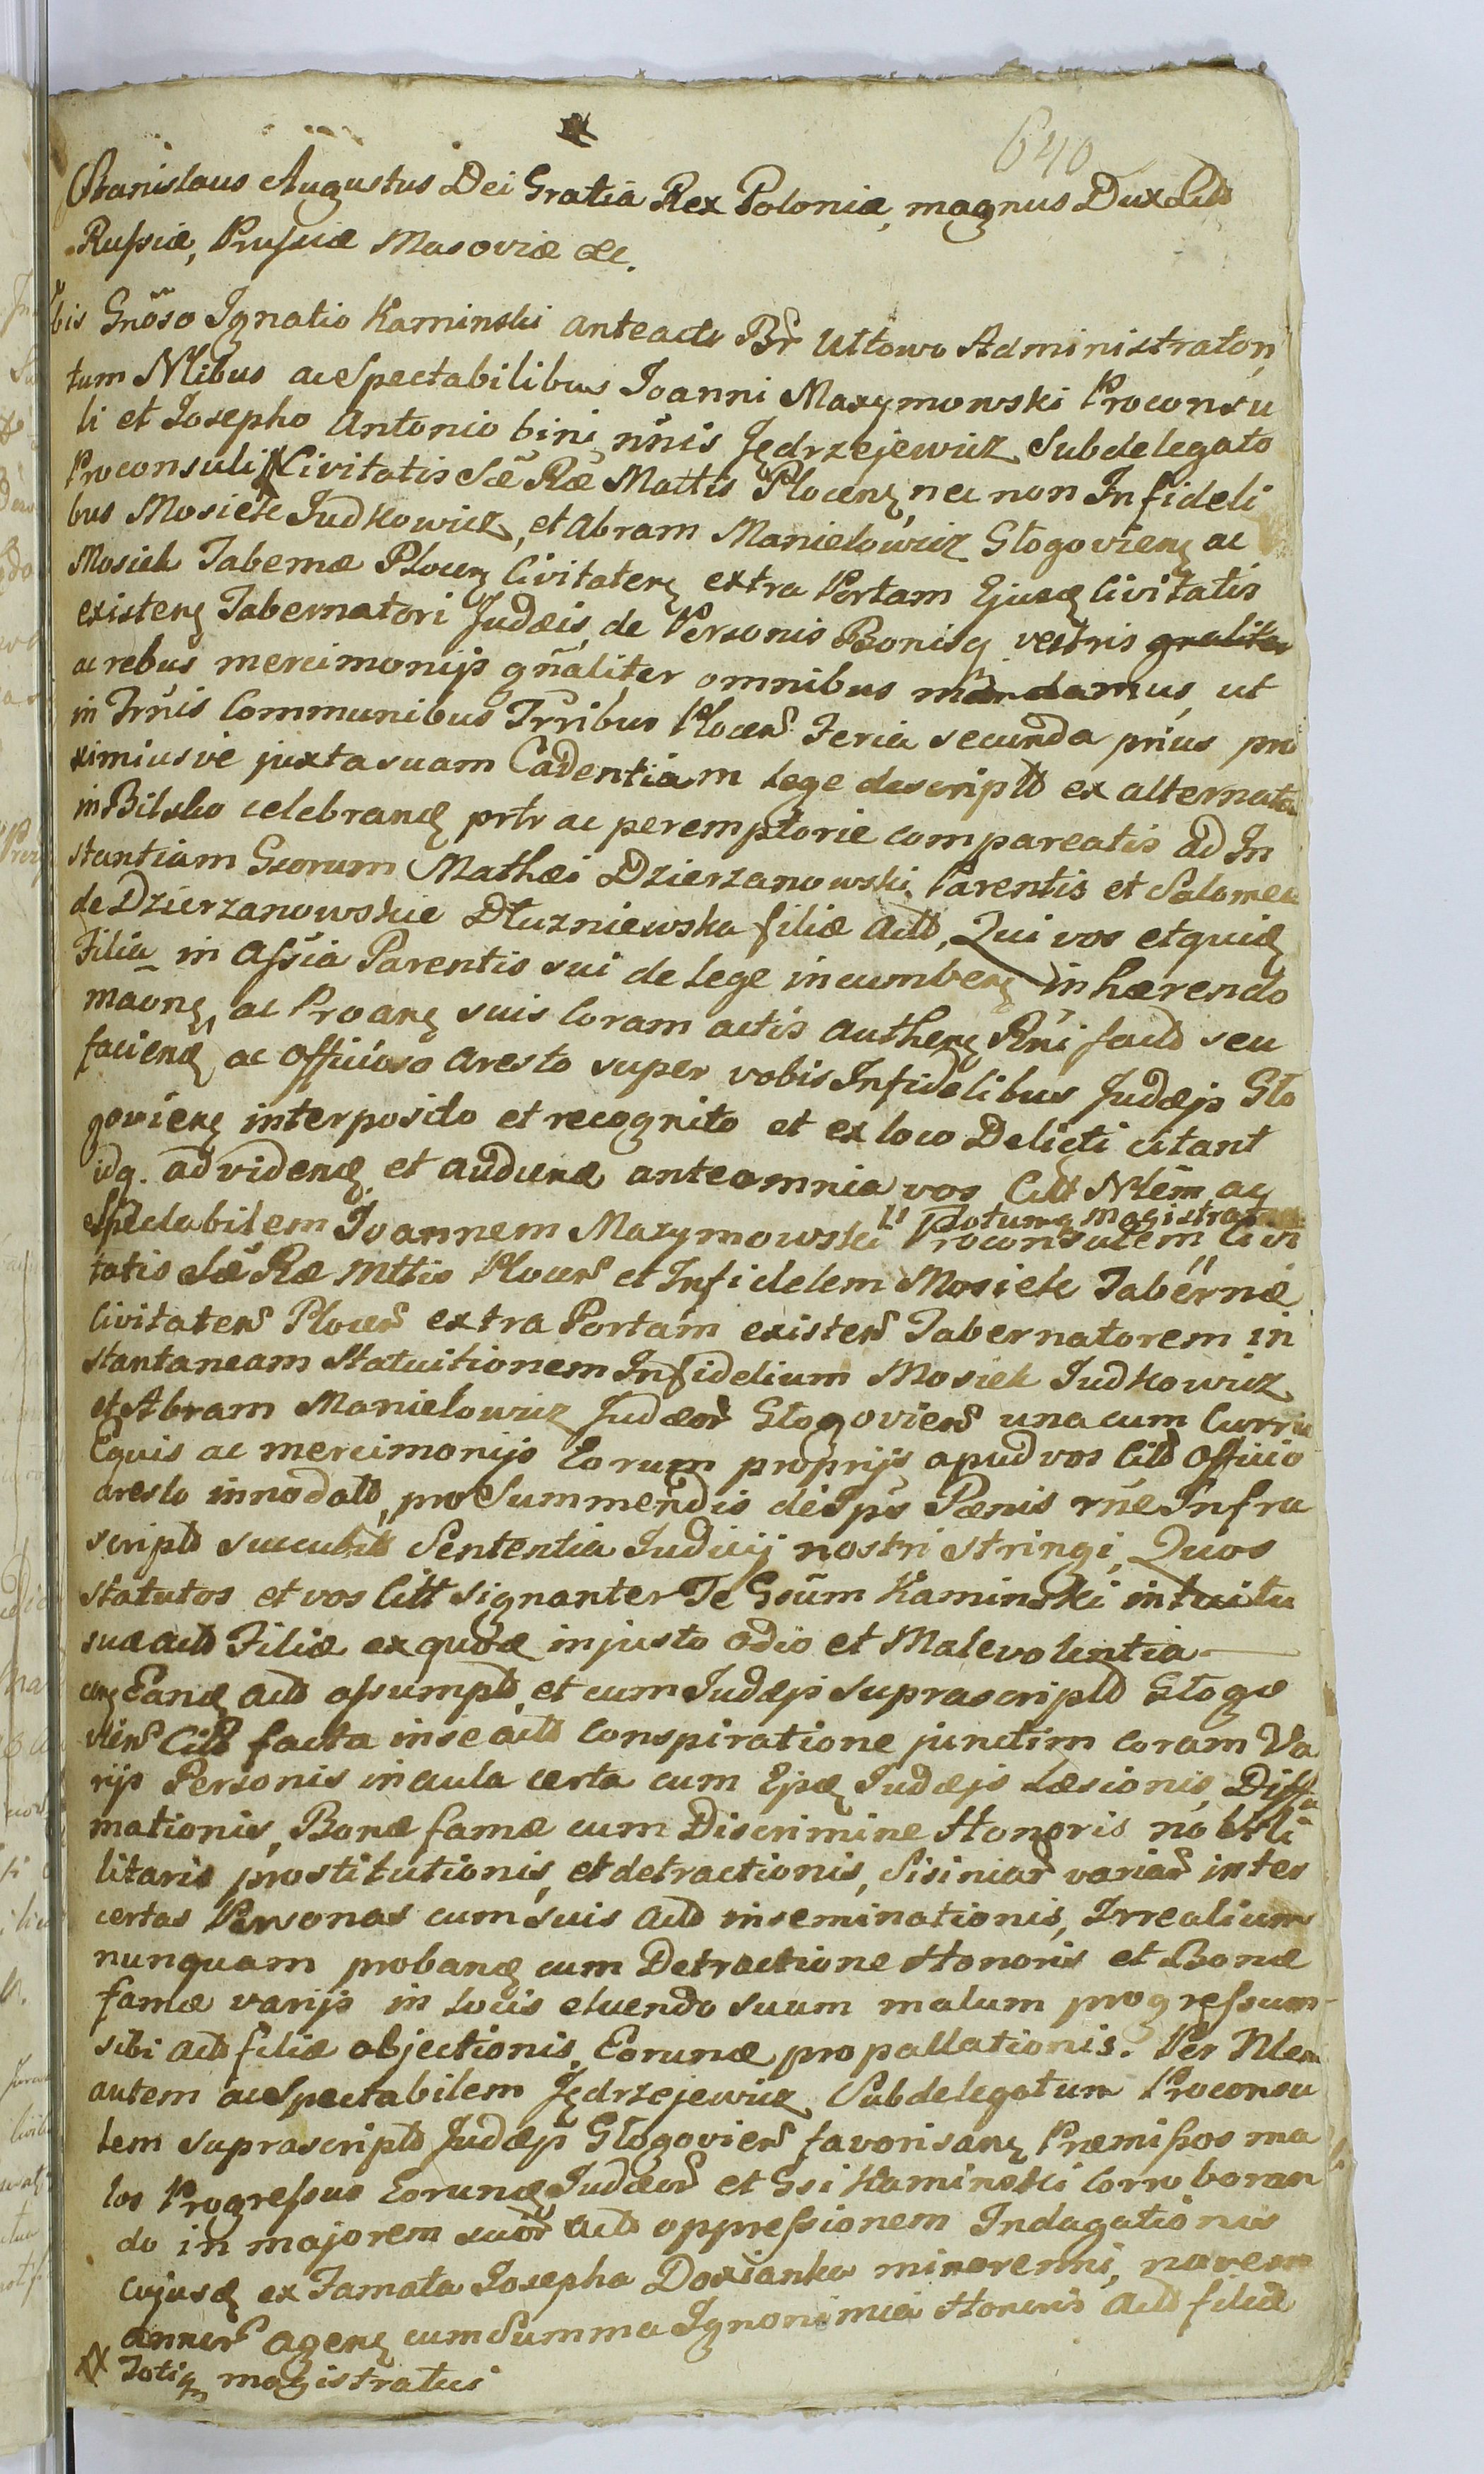 640
Stanislaus Augustus Dei Gratia Rex Poloniæ, magnus Dux Litt
Rußiæ, Prußiæ Masoviæ &c.
bis Gnöso Ignatio Kaminski anteacte Br Uttowo Administraton
tum Nlibus ac Spectabilibus Joanni Maxymowski Proconsu
li et Josepho Antonio bini nñis Jędrzejewicz Subdelegato
Proconsuli Civitatis Sæ Ræ Mattis Plocenȝ, nec non Infideli
bus Mosiek Judkowicz, et Abram Manielowicz Głogovienȝ ac
Mosiek Tabernæ Plocenȝ Civitatenȝ extra Portam Ejusdȝ Civitatis
existenȝ Tabernatori Judæis, de Personis Bonisq vestris graliter
ac rebus mercimonijs gñaliter omnibus mandamus, ut
in Trñis Communibus Trribus Plocen Feria secunda prius pro
ximiusve juxta suam Cadentiam lege descriptt ex alternata
in Bilsko celebrandȝ prtr ac peremptorie compareatis ad In
stantiam Gsorum Mathæi Dzierzanowski Parentis et Salomeæ
de Dzierzanowskie Dłuzniewska filiæ Actt, Qui vos et quidȝ
Filia in Aßia Parentis sui de lege incumbenȝ inhærendo
maonȝ, ac Proanȝ suis coram actis authenȝ Rni factt seu
faciendȝ ac officioso aresto super vobis Infidelibus Judæjs Gło
govienȝ interposito et recognito et ex loco Delicti citant
idq. ad videndȝ et audiendȝ ante omnia vos Citt Nlem ac
Spectabilem Joannem Maxymowski Proconsulem Civi
totumq Magistratum
tatis Sæ Ræ Mttis Plocen et Infidelem Mosiek Tabernæ
Civitaten Plocen extra Portam existen Tabernatorem in
stantaneam Statuitionem Infidelium Mosiek Judkowicz
et Abram Manielowicz Judæor Głogovien una cum Curru
Equis ac mercimonijs Eorum proprijs apud vos Citt Officio
aresto innodatt, pro Summendis de Ipis Pænis rñe Infra
scriptt succubitt Sententia Judicij nostri stringi, Quos
statutos et vos Citt signanter Te Gsum Kaminski intuitu
suæ actt Filiæ ex quodæ injusto odio et Malevolentia
conȝ Eandȝ actt aßumptt, et cum Judæjs suprascriptt Głogo
vien Citt facta in se actt conspiratione junctim coram Va
rijs Personis in aula certa cum Ejsdȝ Judæjs Læsionis, Diffa
mationis, Bonæ famæ cum Discrimine Honoris nobili
litaris prostitutionis, et detractionis, Sisiniar variar inter
certas Personas cum suis actt inseminationis, Irrealium
nunquam probandȝ cum Detractione Honoris et Bonæ
famæ varijs in locis eluendo suum malum progreßum
sibi actt filiæ objectionis, Eorundæ propallationis. Per Nlem
autem ac Spectabilem Jędrzejewicz Subdelegatum Proconsu
lem suprascriptt Judæjs Głogovien favorisanȝ Præmißos ma
los Progreßus Eorundȝ Judæor et Gsi Kaminski corroboran
do in majorem suor actt oppreßionem Indagationis
cujusdȝ ex Famata Josepha Doxianka minorenni, novem
annor agenȝ cum Summa Ignonimia Honoris actt filiæ
Totiq magistratui